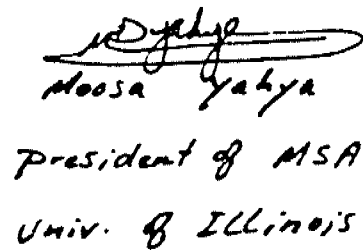 Moosa Yahya
President of MSA
Univ. of ILLinois